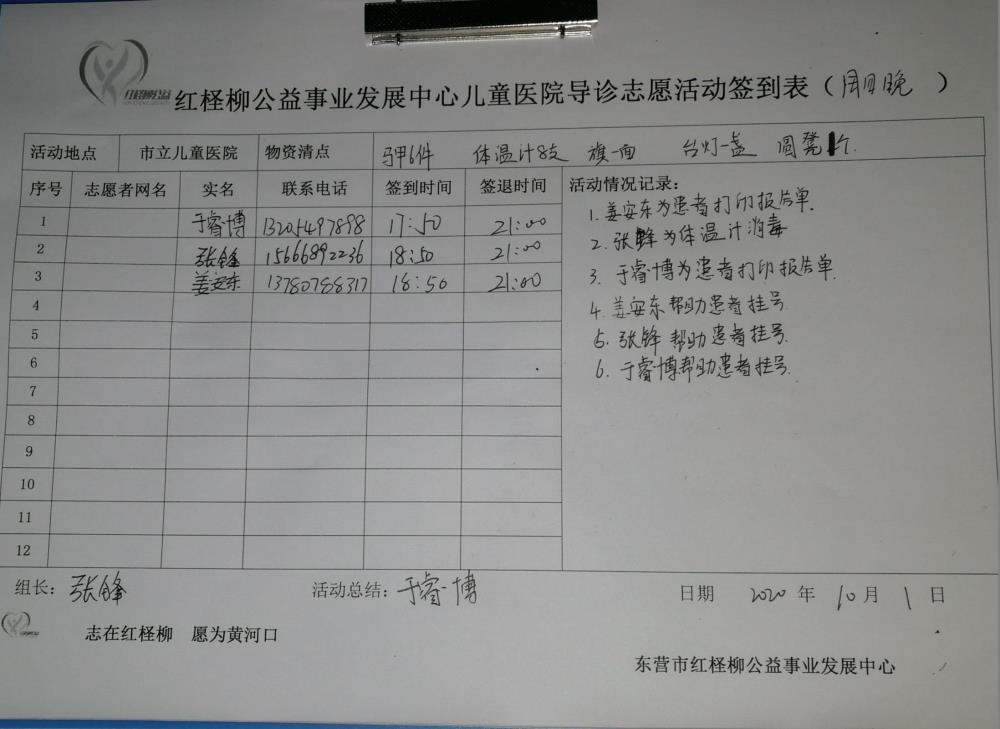 红柽柳公益
红柽柳公益事业发展中心儿童医院导诊志愿活动签到表（周四晚）
活动地点 市立儿童医院 物资清点 马甲6件 体温计8支 旗一面 台灯一盏 圆凳1个.
序号 志愿者网名 实名 联系电话 签到时间 签退时间 活动情况记录：
1 于睿博 13204497898 17:50 21:00
2 张锋 15666892236 18:50 21:00
3 姜安东 13780788317 18:50 21:00
4
5
6
7
8
9
10
11
12
1.姜安东为患者打印报告单.
2.张锋为体温计消毒
3.于睿博为患者打印报告单.
4.姜安东帮助患者挂号.
5.张锋帮助患者挂号.
6.于睿博帮助患者挂号.
组长：张锋 活动总结：于睿博 日期 2020年10月1日
志在红柽柳 愿为黄河口
东营市红柽柳公益事业发展中心